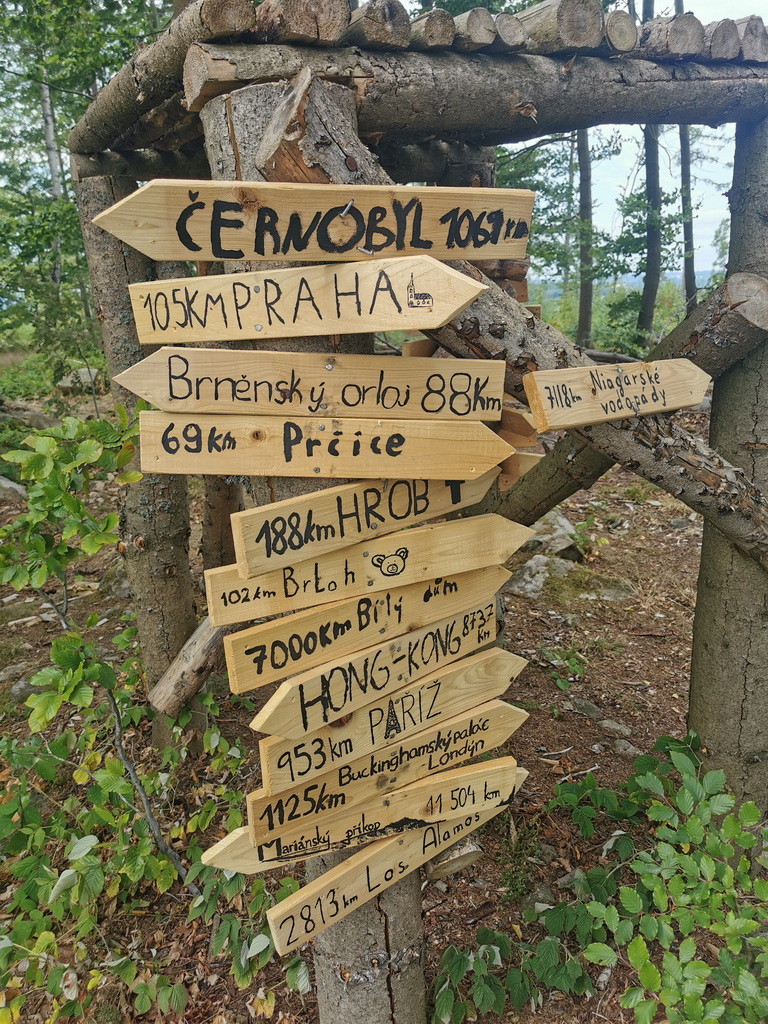 ČERNOBYL 1069 km
105KM PRAHA
Brněnský orloj 88Km
7118km Niagarské
vodopády
69km Prčice
188km HROB
102km Brloh
7000km Bílý dům
HONG-KONG 8732
km
953km PAŘÍŽ
1125km Buckinghamský palác
Londýn
Mariánský příkop 11 504 km
2813km Los Alamos